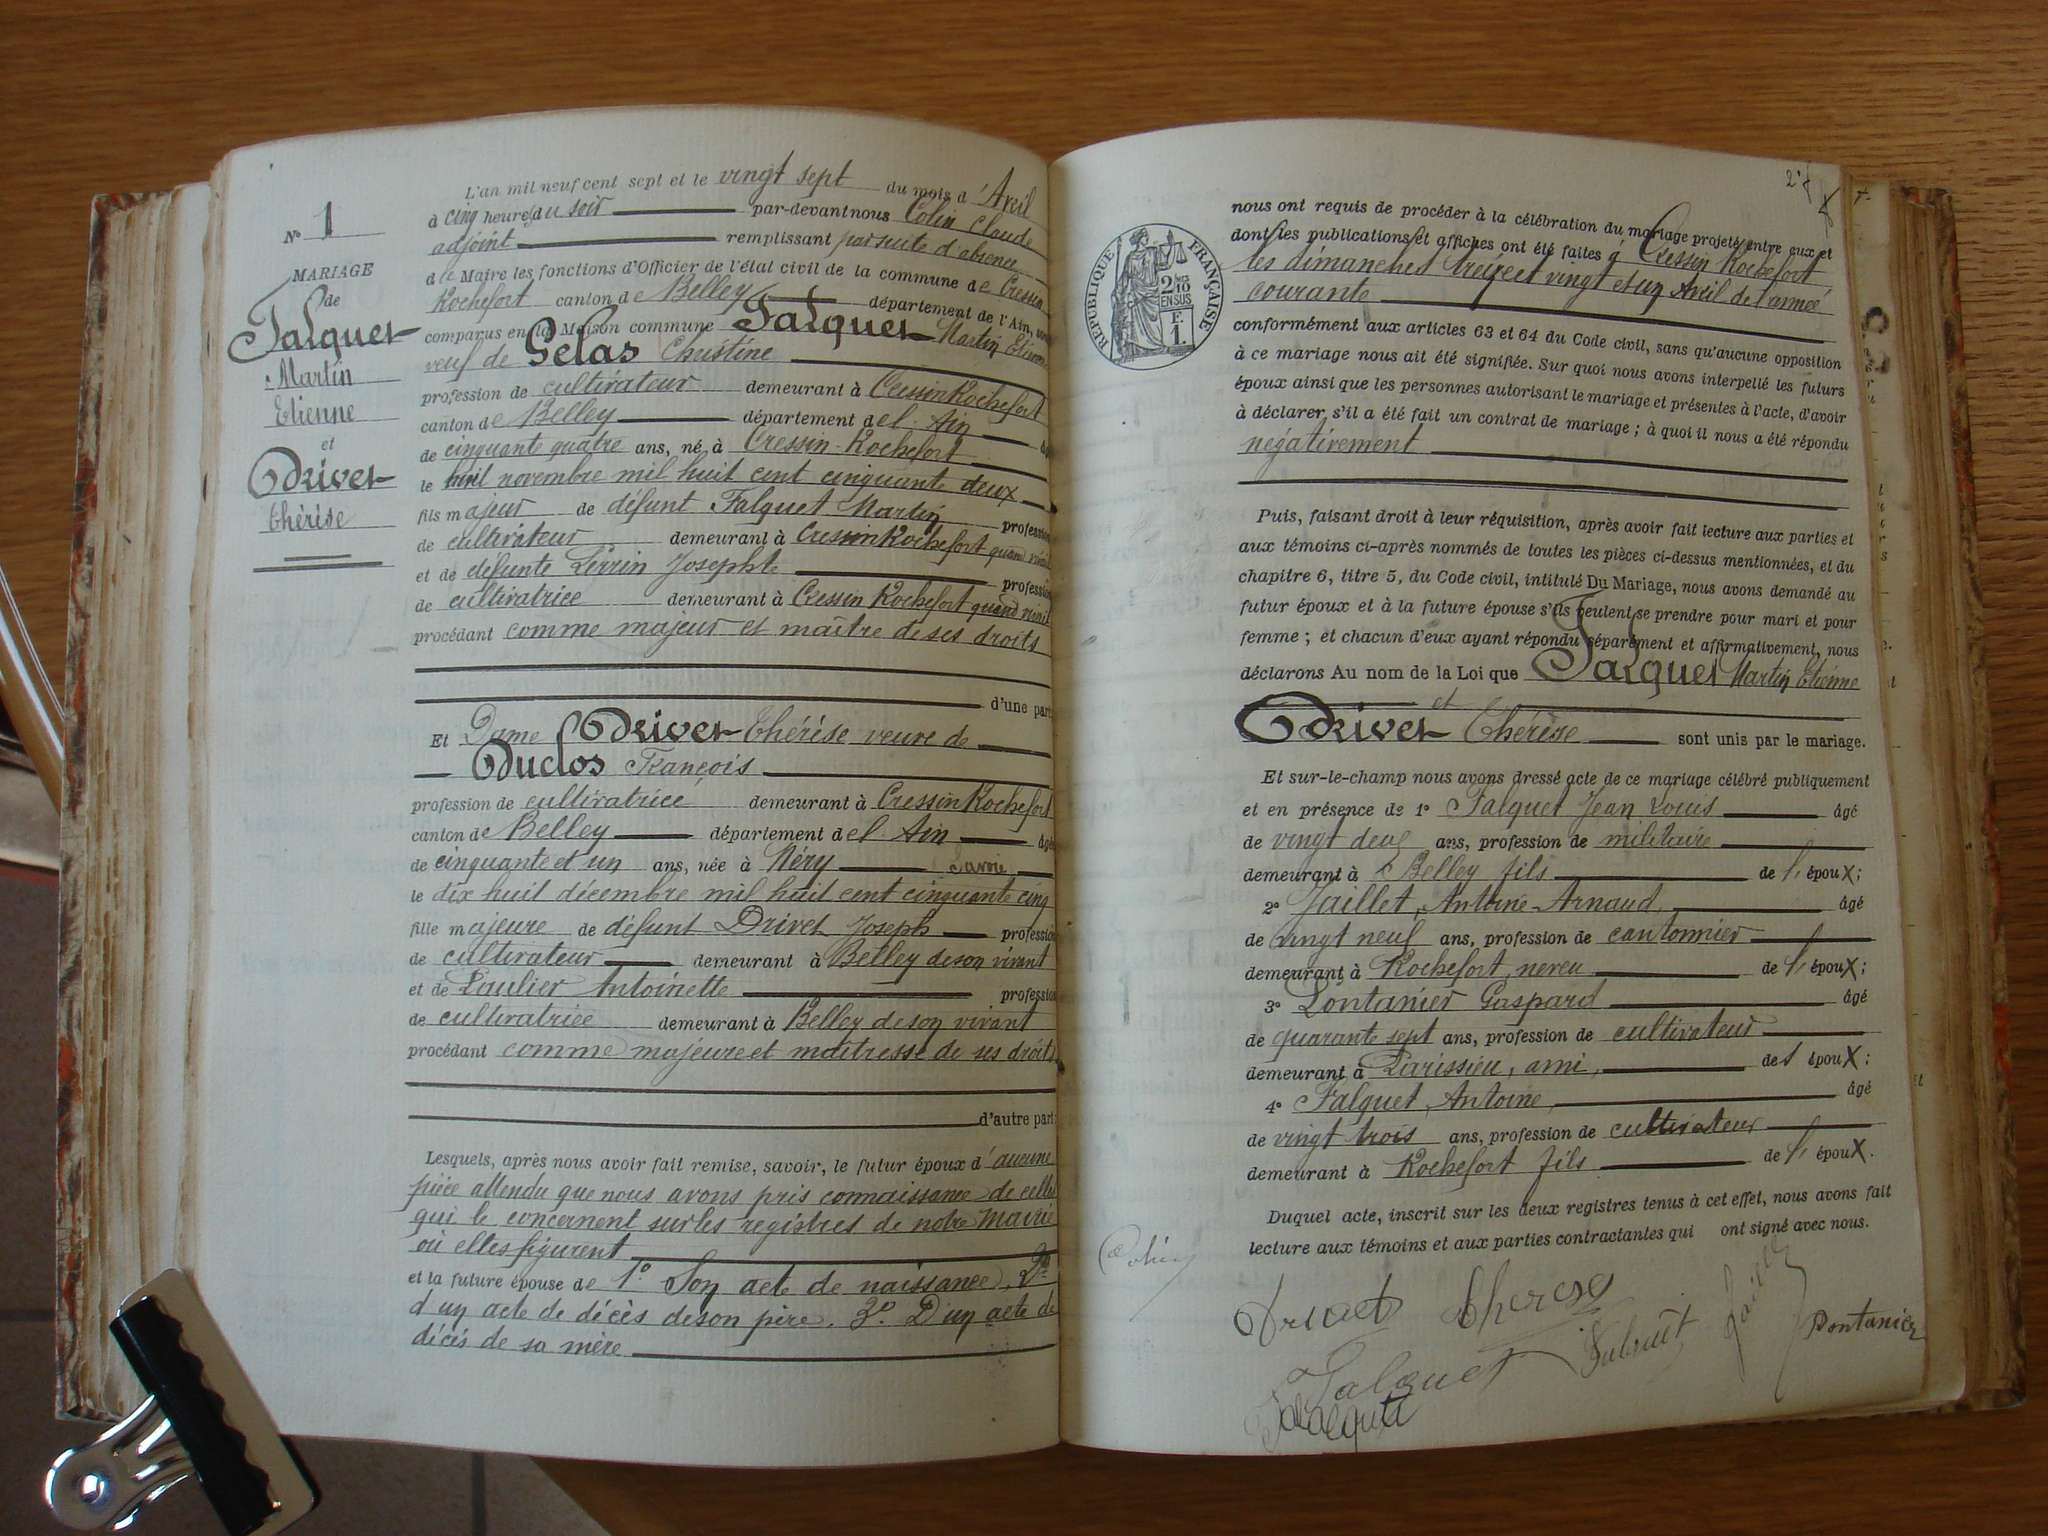 N° 1
MARIAGE
de
Falquet
Martin
Etienne
et
Drivet
Thérèse
L'an mil neuf cent sept et le vingt sept du mois d'Avril
à cinq heures du soir par-devant nous Colin Claude
adjoint remplissant par suite d'absence
de Maire les fonctions d'Officier de l'état civil de la commune de Cressin
Rochefort canton de Belley département de l'Ain, sont
comparus en la Maison commune Falquet Martin Etienne
veuf de Gelas Christine
profession de cultivateur demeurant à Cressin Rochefort
canton de Belley département de l'Ain âgé
de cinquante quatre ans, né à Cressin-Rochefort
le huit novembre mil huit cent cinquante deux
fils majeur de défunt Falquet Martin profession
de cultivateur demeurant à Cressin Rochefort quand vivait
et de défunte Perrin Josephte profession
de cultivatrice demeurant à Cressin Rochefort quand vivait
procédant comme majeur et maître de ses droits
d'une part
Et Dame Drivet Thérèse veuve de
Duclos François
profession de cultivatrice demeurant à Cressin Rochefort
canton de Belley département de l'Ain âgé
de cinquante et un ans, née à Méry Savoie
le dix huit décembre mil huit cent cinquante cinq
fille majeure de défunt Drivet Joseph profession
de cultivateur demeurant à Belley de son vivant
et de Paulier Antoinette profession
de cultivatrice demeurant à Belley de son vivant
procédant comme majeure et maîtresse de ses droits
d'autre part:
Lesquels, après nous avoir fait remise, savoir, le futur époux d'aucune
pièce attendu que nous avons pris connaissance de celles
qui le concernent sur les registres de notre Mairie
où elles figurent
et la future épouse de 1° Son acte de naissance. 2°
d'un acte de décès de son père. 3° D'un acte de
décès de sa mère
2
RÉPUBLIQUE FRANÇAISE
2/10 EN SUS
F.
1.
nous ont requis de procéder à la célébration du mariage projeté entre eux et
dont les publications et affiches ont été faites à Cressin Rochefort
les dimanches treize et vingt et un Avril de l'année
courante
conformément aux articles 63 et 64 du Code civil, sans qu'aucune opposition
à ce mariage nous ait été signifiée. Sur quoi nous avons interpellé les futurs
époux ainsi que les personnes autorisant le mariage et présentes à l'acte, d'avoir
à déclarer, s'il a été fait un contrat de mariage ; à quoi il nous a été répondu
négativement
Puis, faisant droit à leur réquisition, après avoir fait lecture aux parties et
aux témoins ci-après nommés de toutes les pièces ci-dessus mentionnées, et du
chapitre 6, titre 5, du Code civil, intitulé Du Mariage, nous avons demandé au
futur époux et à la future épouse s'ils veulent se prendre pour mari et pour
femme ; et chacun d'eux ayant répondu séparément et affirmativement, nous
déclarons Au nom de la Loi que Falquet Martin Etienne
et
Drivet Thérèse sont unis par le mariage.
Et sur-le-champ nous avons dressé acte de ce mariage célébré publiquement
et en présence de 1° Falquet Jean Louis âgé
de vingt deux ans, profession de militaire
demeurant à Belley fils de l'époux;
2° Jaillet, Antoine-Arnaud âgé
de vingt neuf ans, profession de cantonnier
demeurant à Rochefort, neveu de l'époux;
3° Pontanier Gaspard âgé
de quarante sept ans, profession de cultivateur
demeurant à Parissieu, ami, de l'époux;
4° Falquet, Antoine, âgé
de vingt trois ans, profession de cultivateur
demeurant à Rochefort fils de l'époux.
Duquel acte, inscrit sur les deux registres tenus à cet effet, nous avons fait
lecture aux témoins et aux parties contractantes qui ont signé avec nous.
Colin
Drivet Therese
Jaillet
Pontanier
Falquet
Falquet